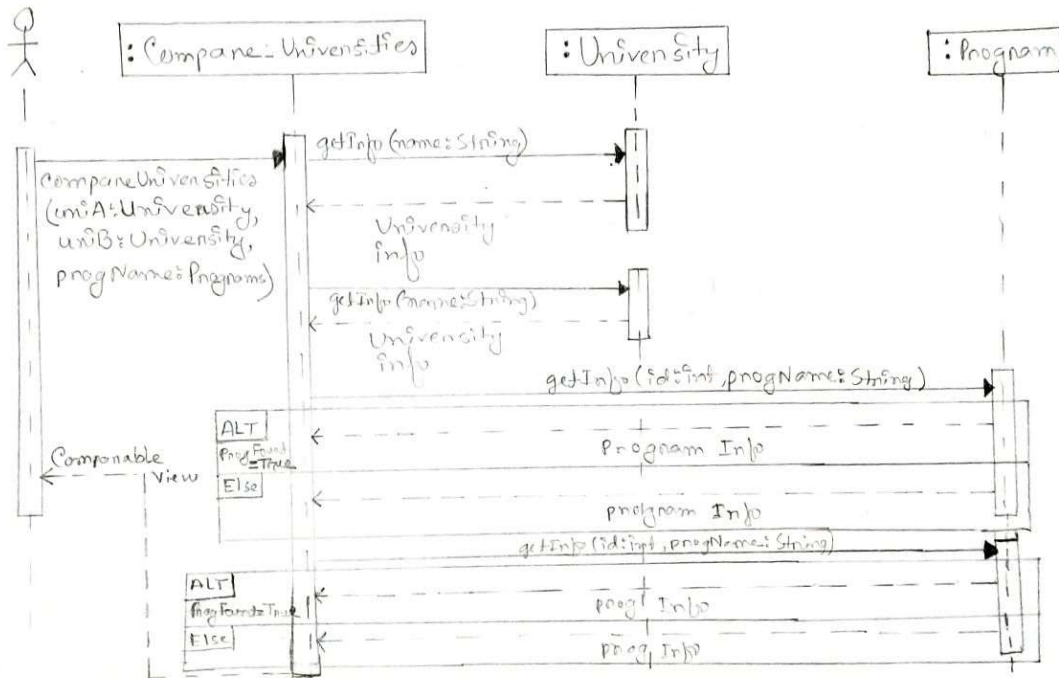 : Compare-Universities
: University
: Program
getInfo(name:String)
compareUniversities
(uniA:University,
uniB:University,
progName:Programs)
University
info
getInfo(name:String)
University
info
getInfo(id:int,progName:String)
ALT
ProgFound
=True
Program Info
Comparable
View
Else
program Info
getInfo(id:int,progName:String)
ALT
ProgFound=True
prog Info
Else
prog Info